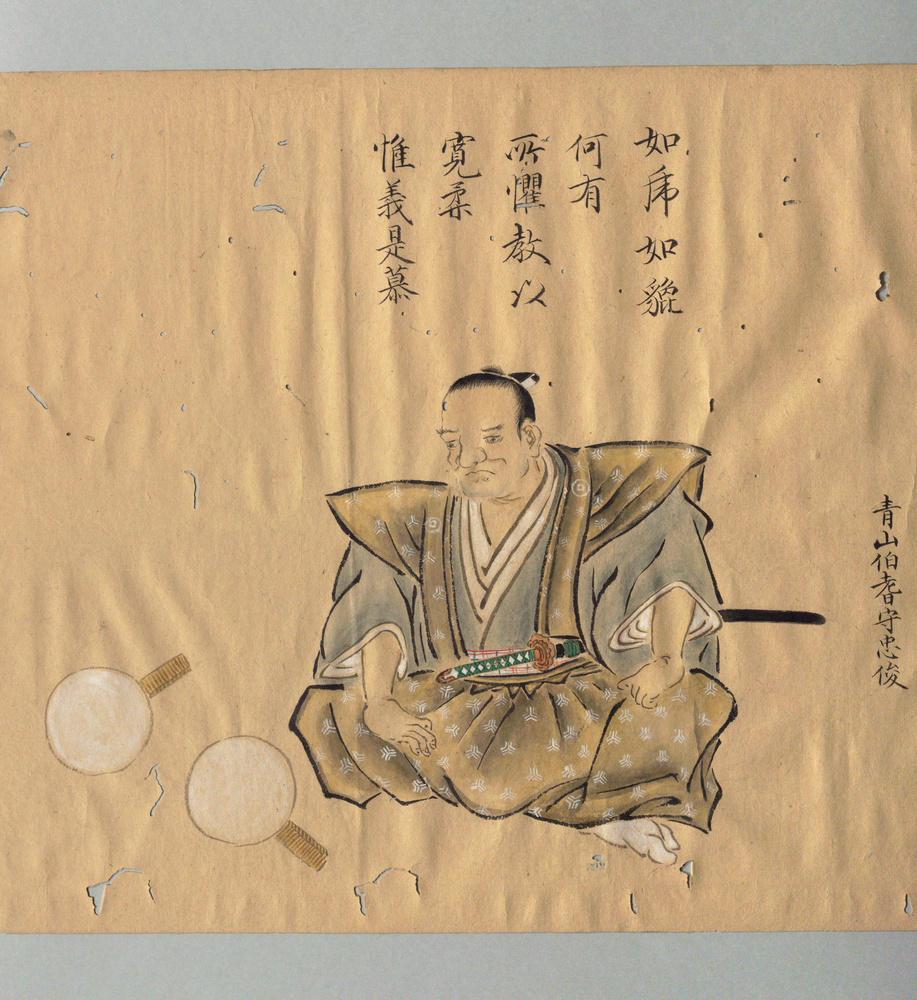 如虎如貔
何有
所懼教以
寛柔
惟義是慕
青山伯耆守忠俊